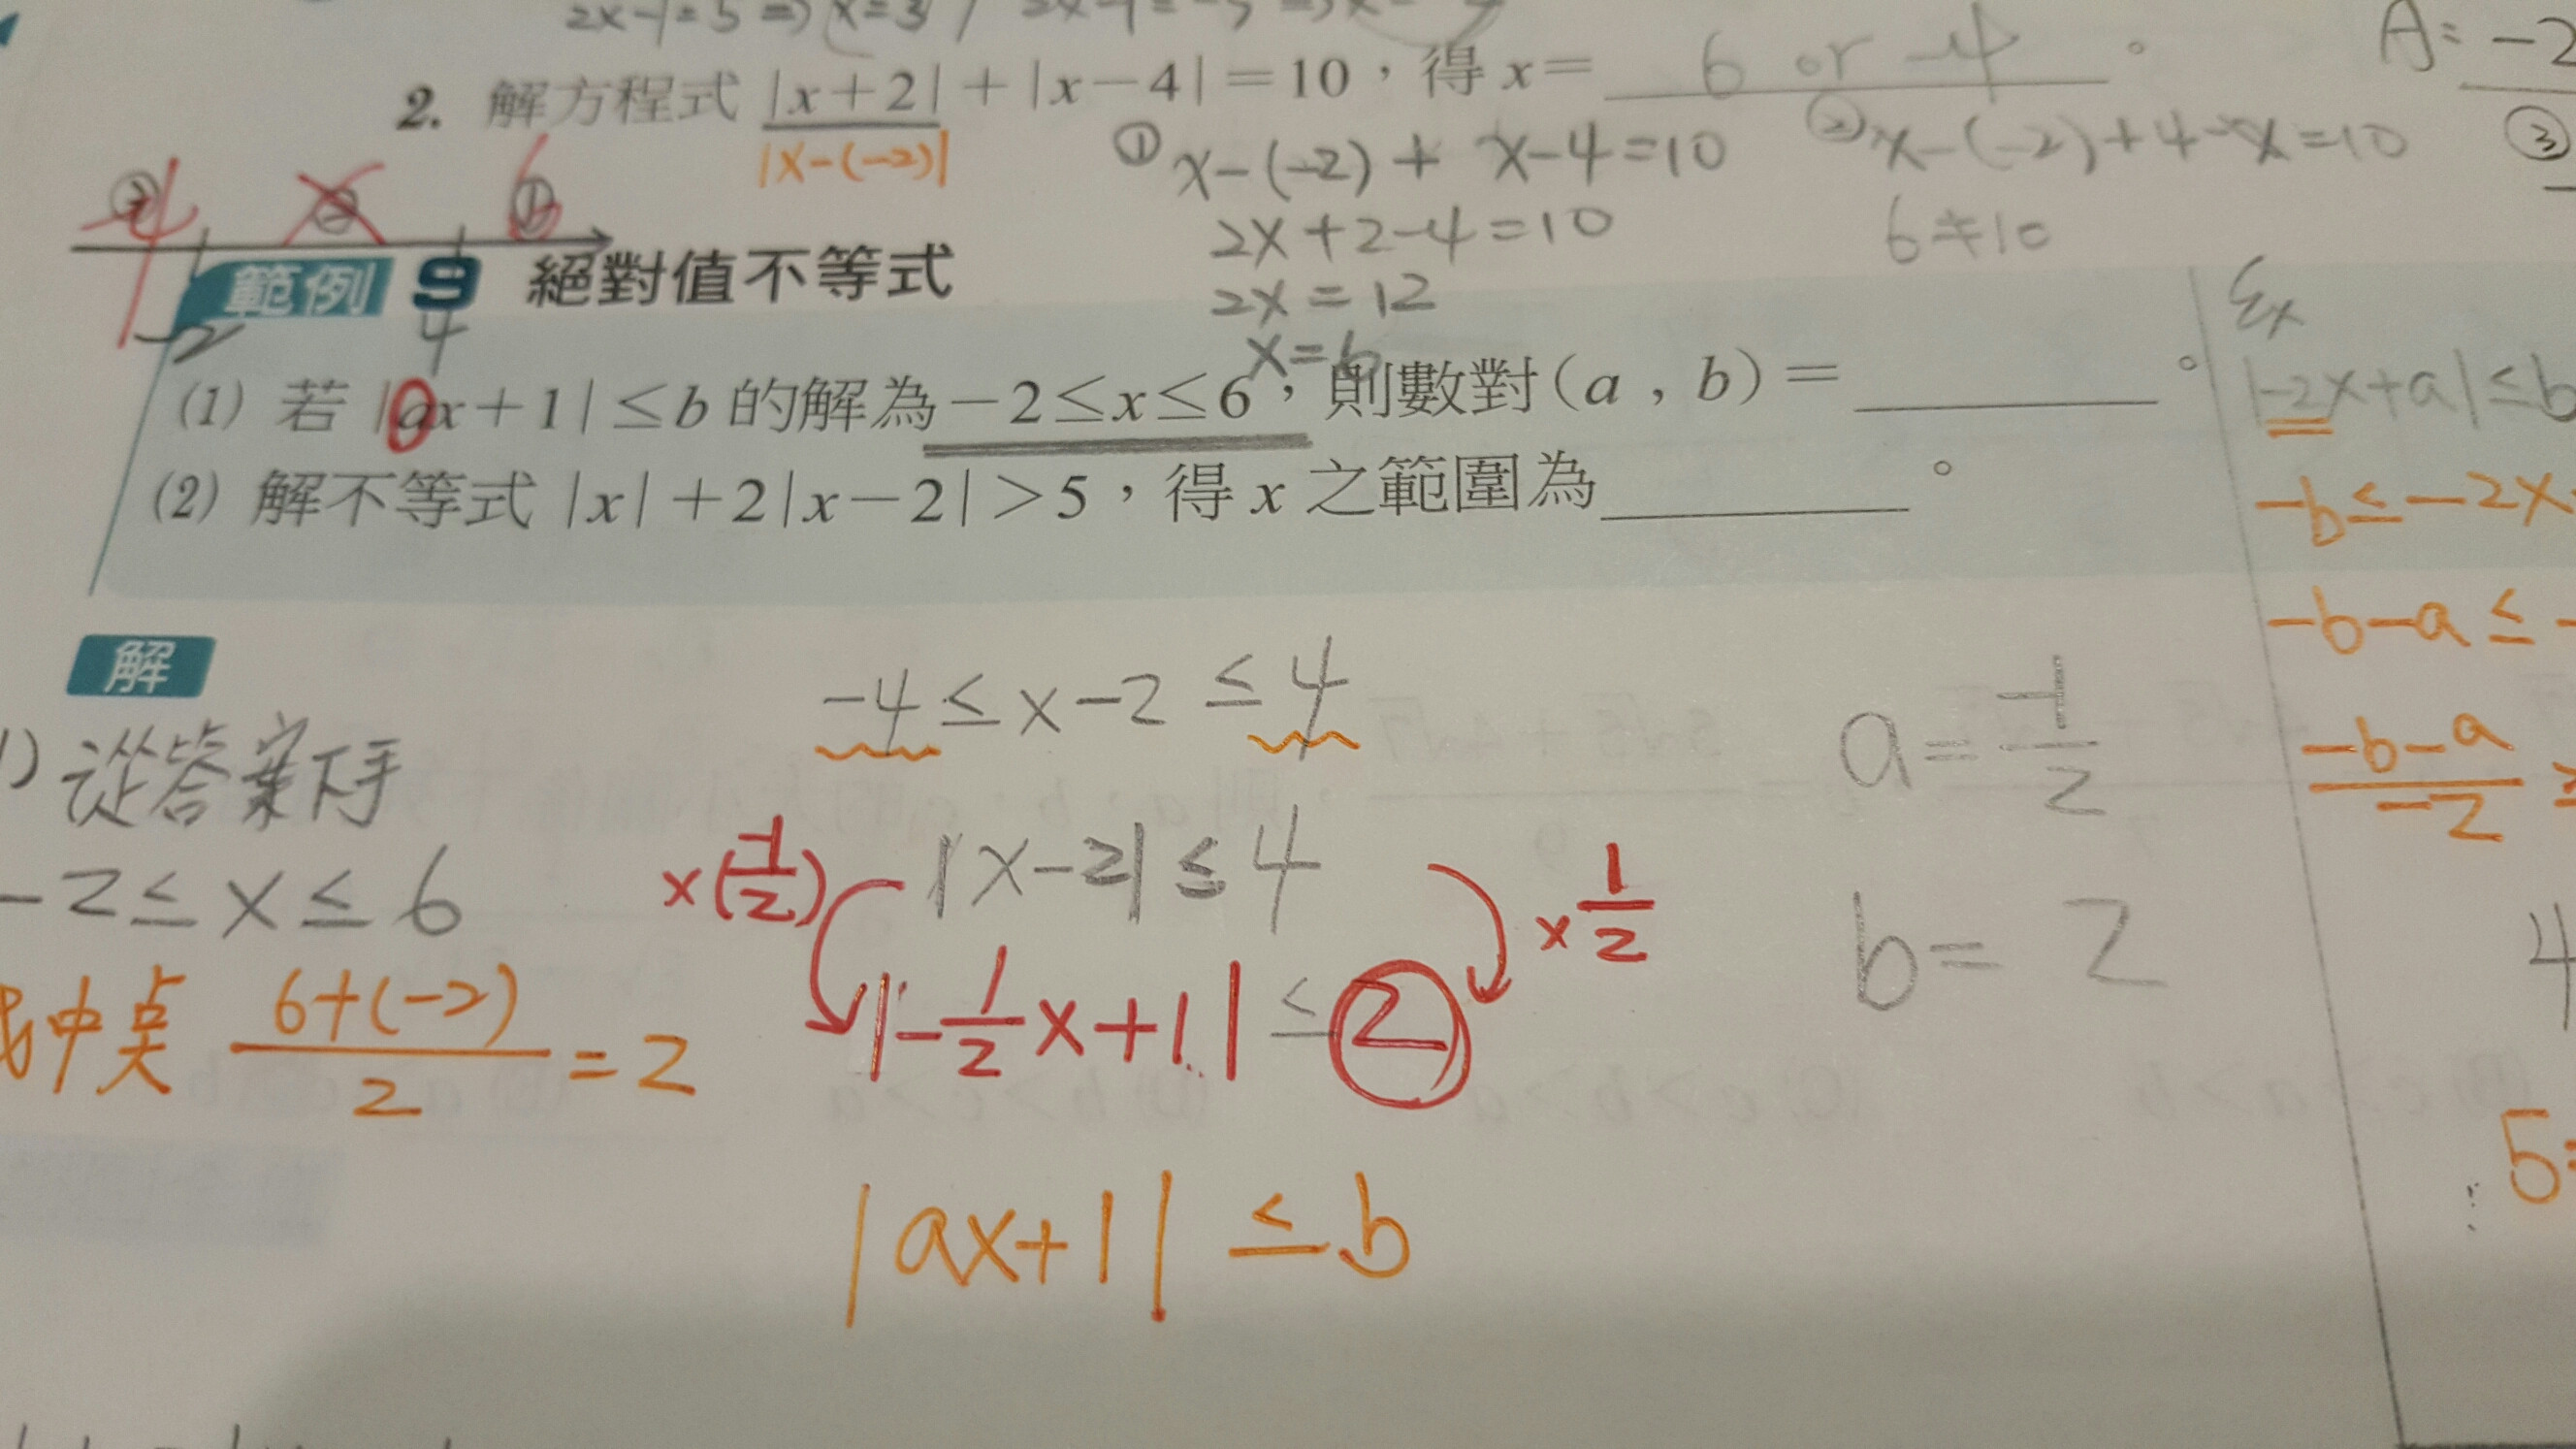 2x-1=5 ⇒ x=3 / 2x-1=-5 ⇒ x=
2. 解方程式 |x+2|+|x-4|=10，得 x= 6 or -4 。
|x-(-2)|
① x-(-2)+ x-4=10
2x+2-4=10
2x=12
x=6
② x-(-2)+4-x=10
6≠10
A: -2
③
-4 ③ ② 6 ①
-2 4
範例 9 絕對值不等式
(1) 若 |ax+1|≤b 的解為 -2≤x≤6，則數對(a , b)= 。
(2) 解不等式 |x|+2|x-2|>5，得 x 之範圍為 。
Ex
|-2x+a|≤b
-b≤-2x
-b-a≤-
(-b-a)/-2 ≥
4
5
解
1) 從答案下手
-2≤x≤6
找中点 (6+(-2))/2 =2
-4≤x-2≤4
|x-2|≤4
×(-1/2)
×1/2
|-1/2x+1|≤2
|ax+1|≤b
a=-1/2
b=2